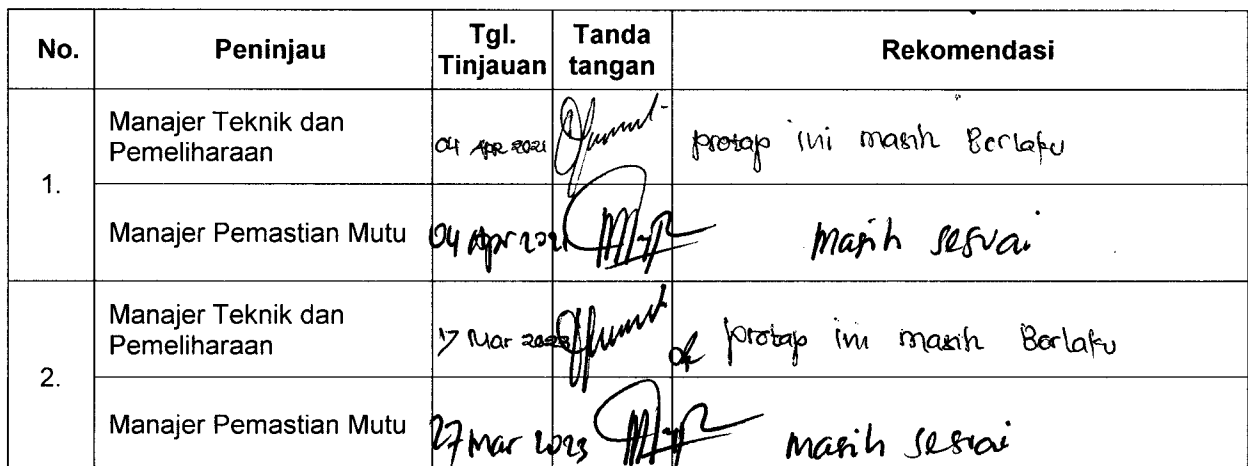 No. Peninjau Tgl. Tinjauan Tanda tangan Rekomendasi
1. Manajer Teknik dan Pemeliharaan 04 APR 2021 protap ini masih Berlaku
Manajer Pemastian Mutu 04 Apr 2021 masih sesuai
2. Manajer Teknik dan Pemeliharaan 17 Mar 2023 protap ini masih Berlaku
Manajer Pemastian Mutu 27 Mar 2023 masih sesuai